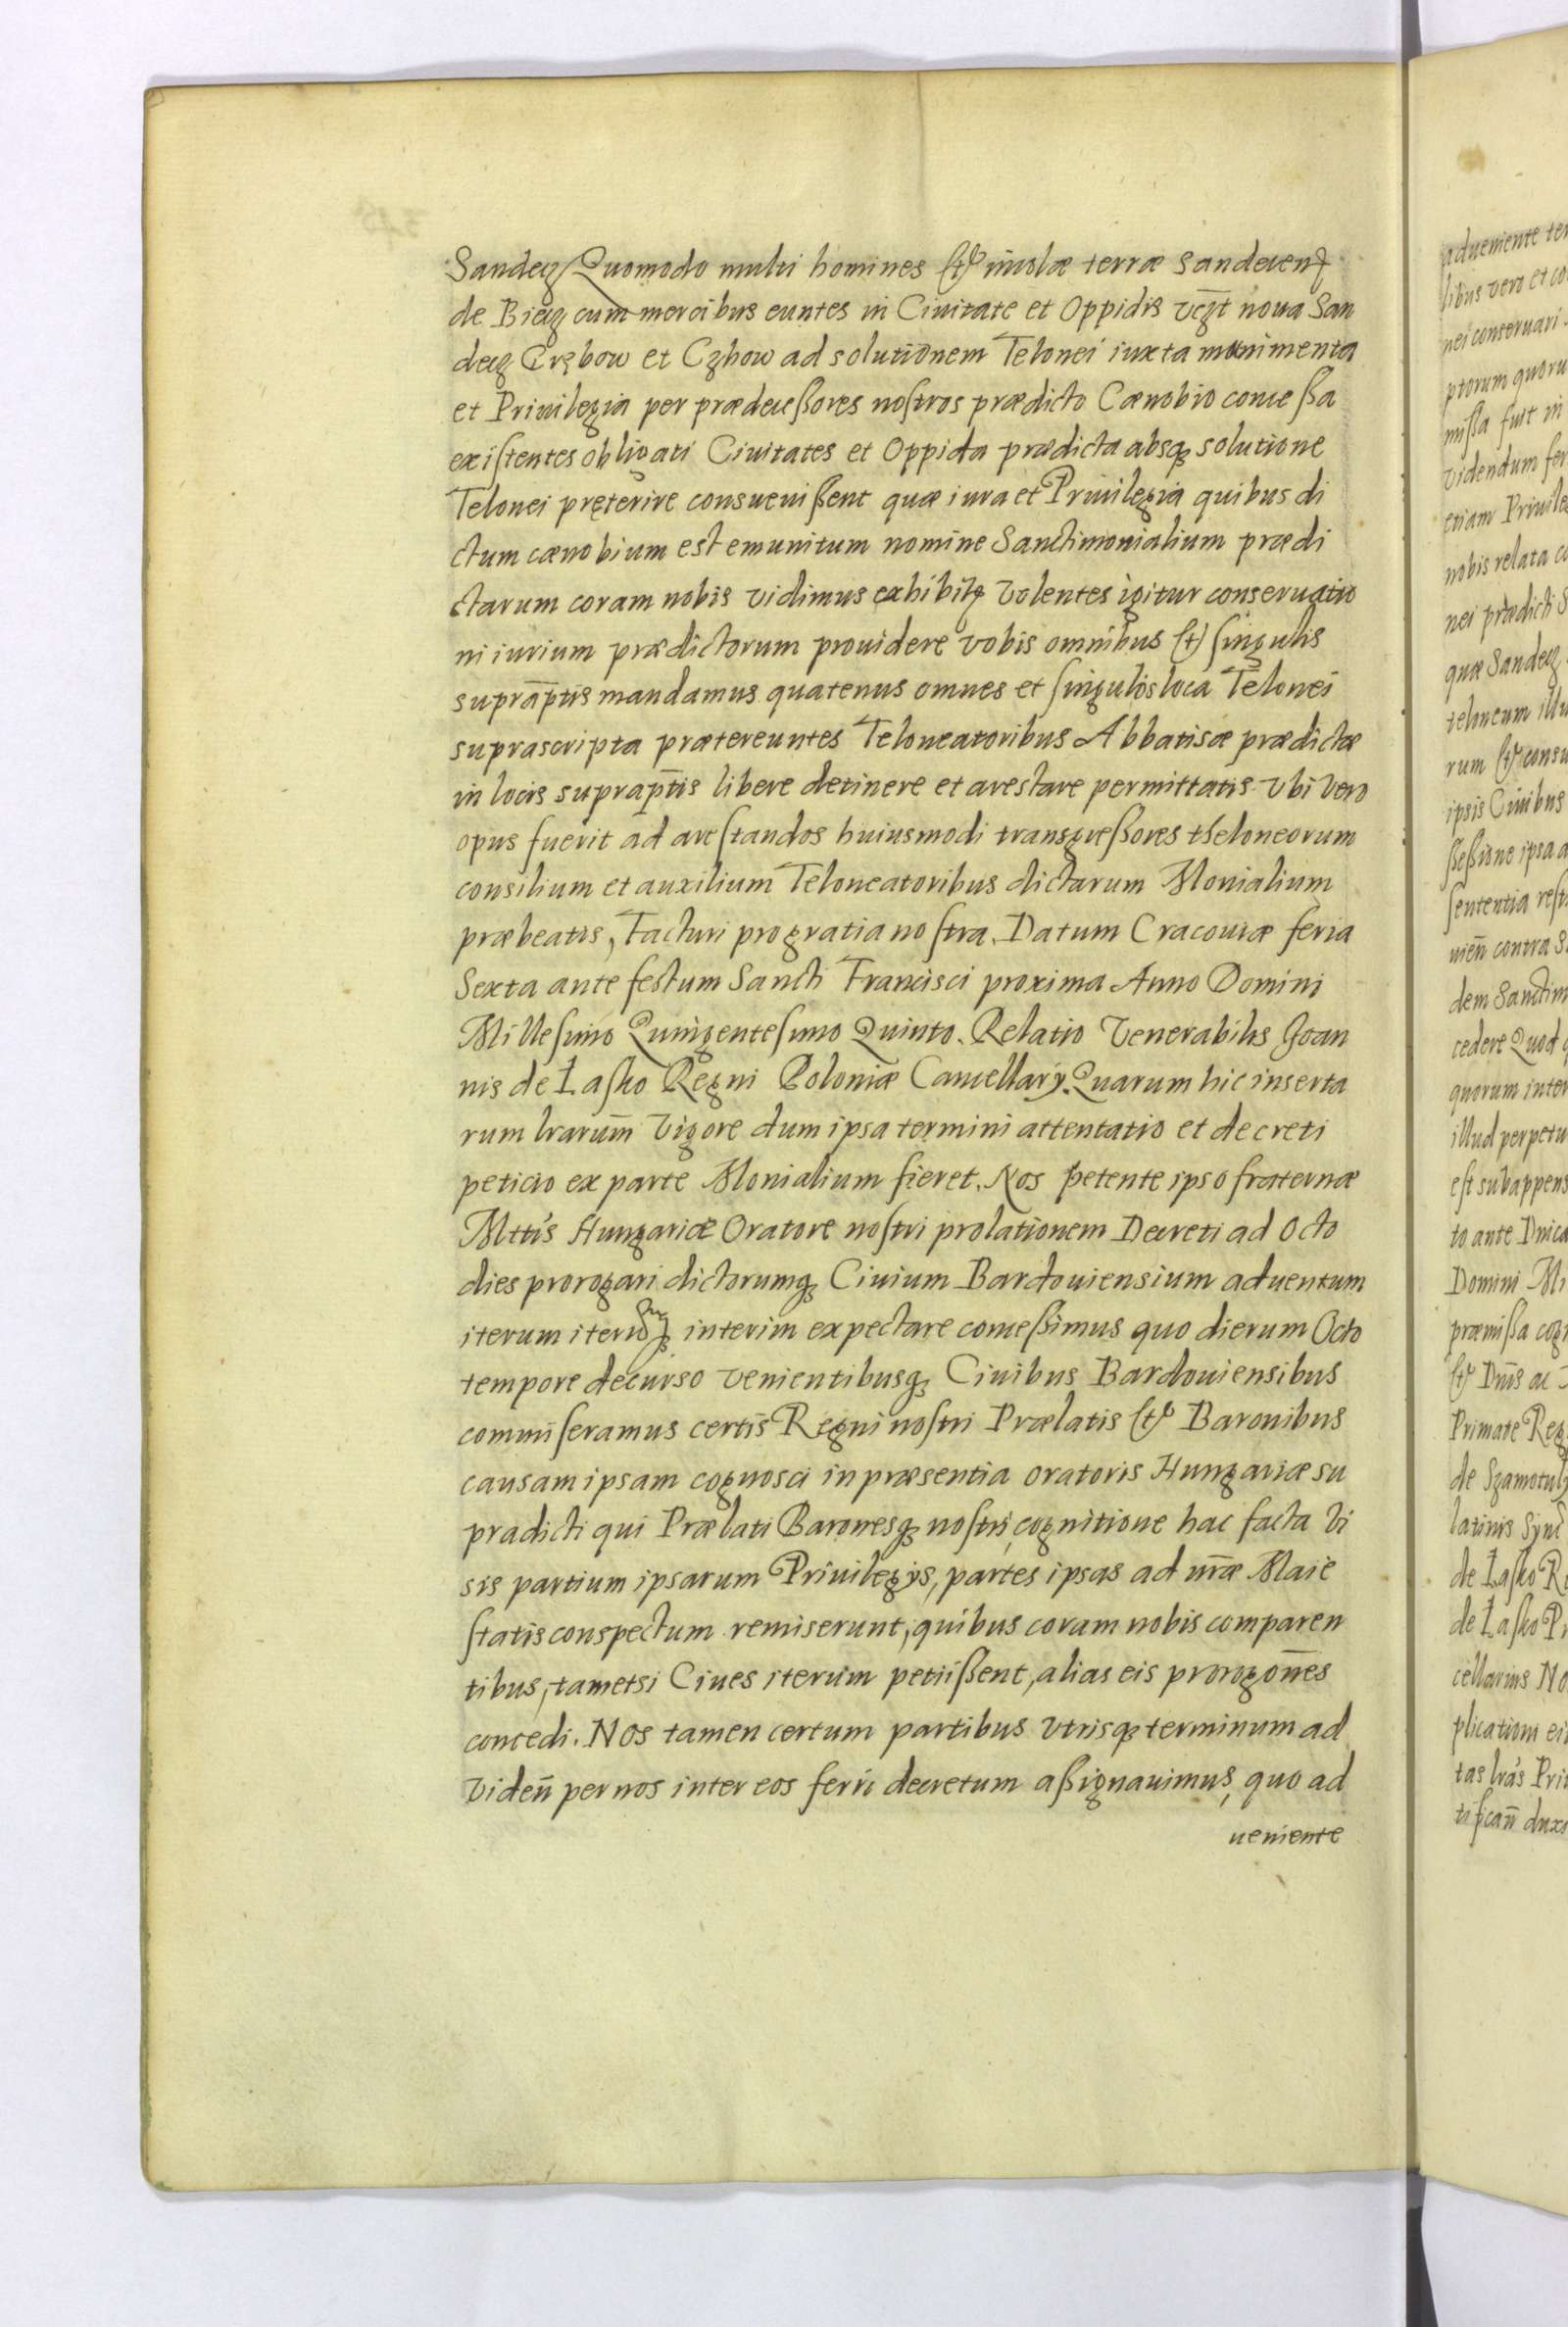 Sandecz Quomodo multi homines et incolæ terræ Sandecen
de Biecz cum mercibus euntes in Ciuitate et Oppidis vczt noua San
decz Grębow et Czhow ad solutionem Telonei iuxta munimenta
et Priuilegia per prædeceßores noſtros prædicto Cænobio conceßa
exiſtentes obligati Ciuitates et Oppida prædicta absq solutione
Telonei pręterire consueuißent quæ iura et Priuilegia quibus di
ctum cænobium est emunitum nomine Sanctimonialium prædi
ctarum coram nobis vidimus exhibitq Volentes igitur conseruatio
ni iurium prædictorum prouidere vobis omnibus et ſingulis
suprap̄tis mandamus quatenus omnes et ſingulos loca Telonei
suprascripta prætereuntes Teloneatoribus Abbatisæ prædictæ
in locis suprap̄tis libere detinere et arestare permittatis Vbi vero
opus fuerit ad areſtandos huiusmodi transgreßores theloneorum
consilium et auxilium Teloneatoribus dictarum Monialium
præbeatis, Facturi pro gratia noſtra. Datum Cracouiæ feria
Sexta ante festum Sancti Francisci proxima Anno Domini
Milleſimo Quingenteſimo Quinto. Relatio Venerabilis Joan
nis de Łaſko Regni Poloniæ Cancellarÿ. Quarum hic inserta
rum lrarum̄ Vigore dum ipsa termini attentatio et decreti
peticio ex parte Monialium fieret. Nos petente ipso fraternæ
Mttis Hungaricæ Oratore noſtri prolationem Decreti ad Octo
dies prorogari dictorumq Ciuium Bardouiensium aduentum
iterum interim expectare conceßimus quo dierum Octo
tempore decurso venientibusq Ciuibus Bardouiensibus
commiſeramus certis Regni noſtri Prælatis et Baronibus
causam ipsam cognosci in præsentia oratoris Hungariæ su
pradicti qui Prælati Baronesq noſtri, cognitione hac facta Vi
sis partium ipsarum Priuilegÿs, partes ipsas ad nr̄æ Maie
ſtatis conspectum remiserunt, quibus coram nobis comparen
tibus, tametsi Ciues iterum petiißent, alias eis prorogon̄es
concedi. Nos tamen certum partibus vtrisq terminum ad
viden̄ per nos inter eos ferri decretum aßignauimus, quo ad
ueniente